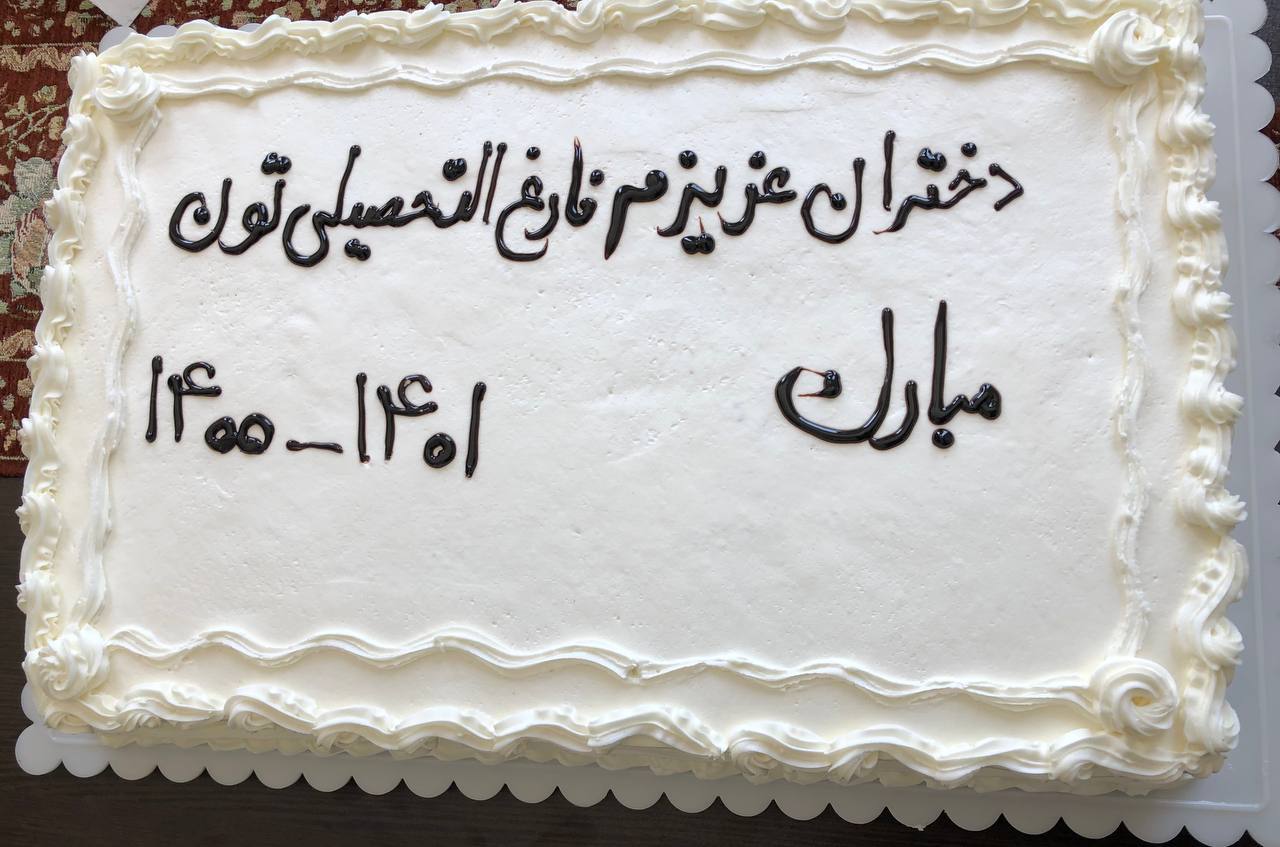 دختران عزیزم فارغ التحصیلی تون
مبارک
۱۴۰۰ - ۱۴۰۱